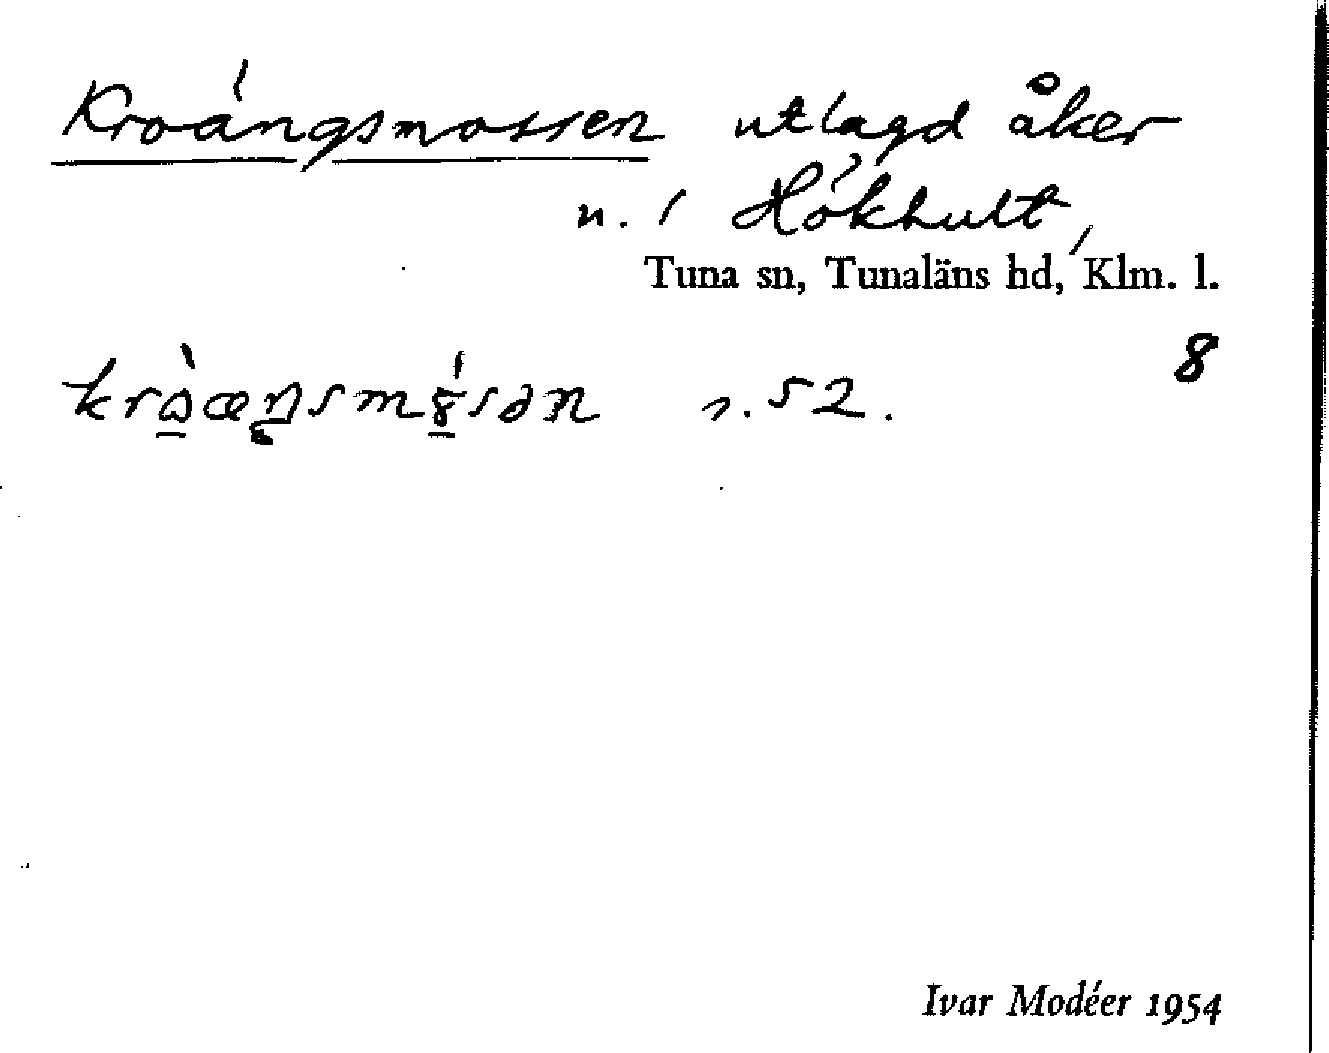 Kroängsmossen utlagd åker
n. i Hökhult,
Tuna sn, Tunaläns hd, Klm. l.
8
s. 52.
Ivar Modéer 1954